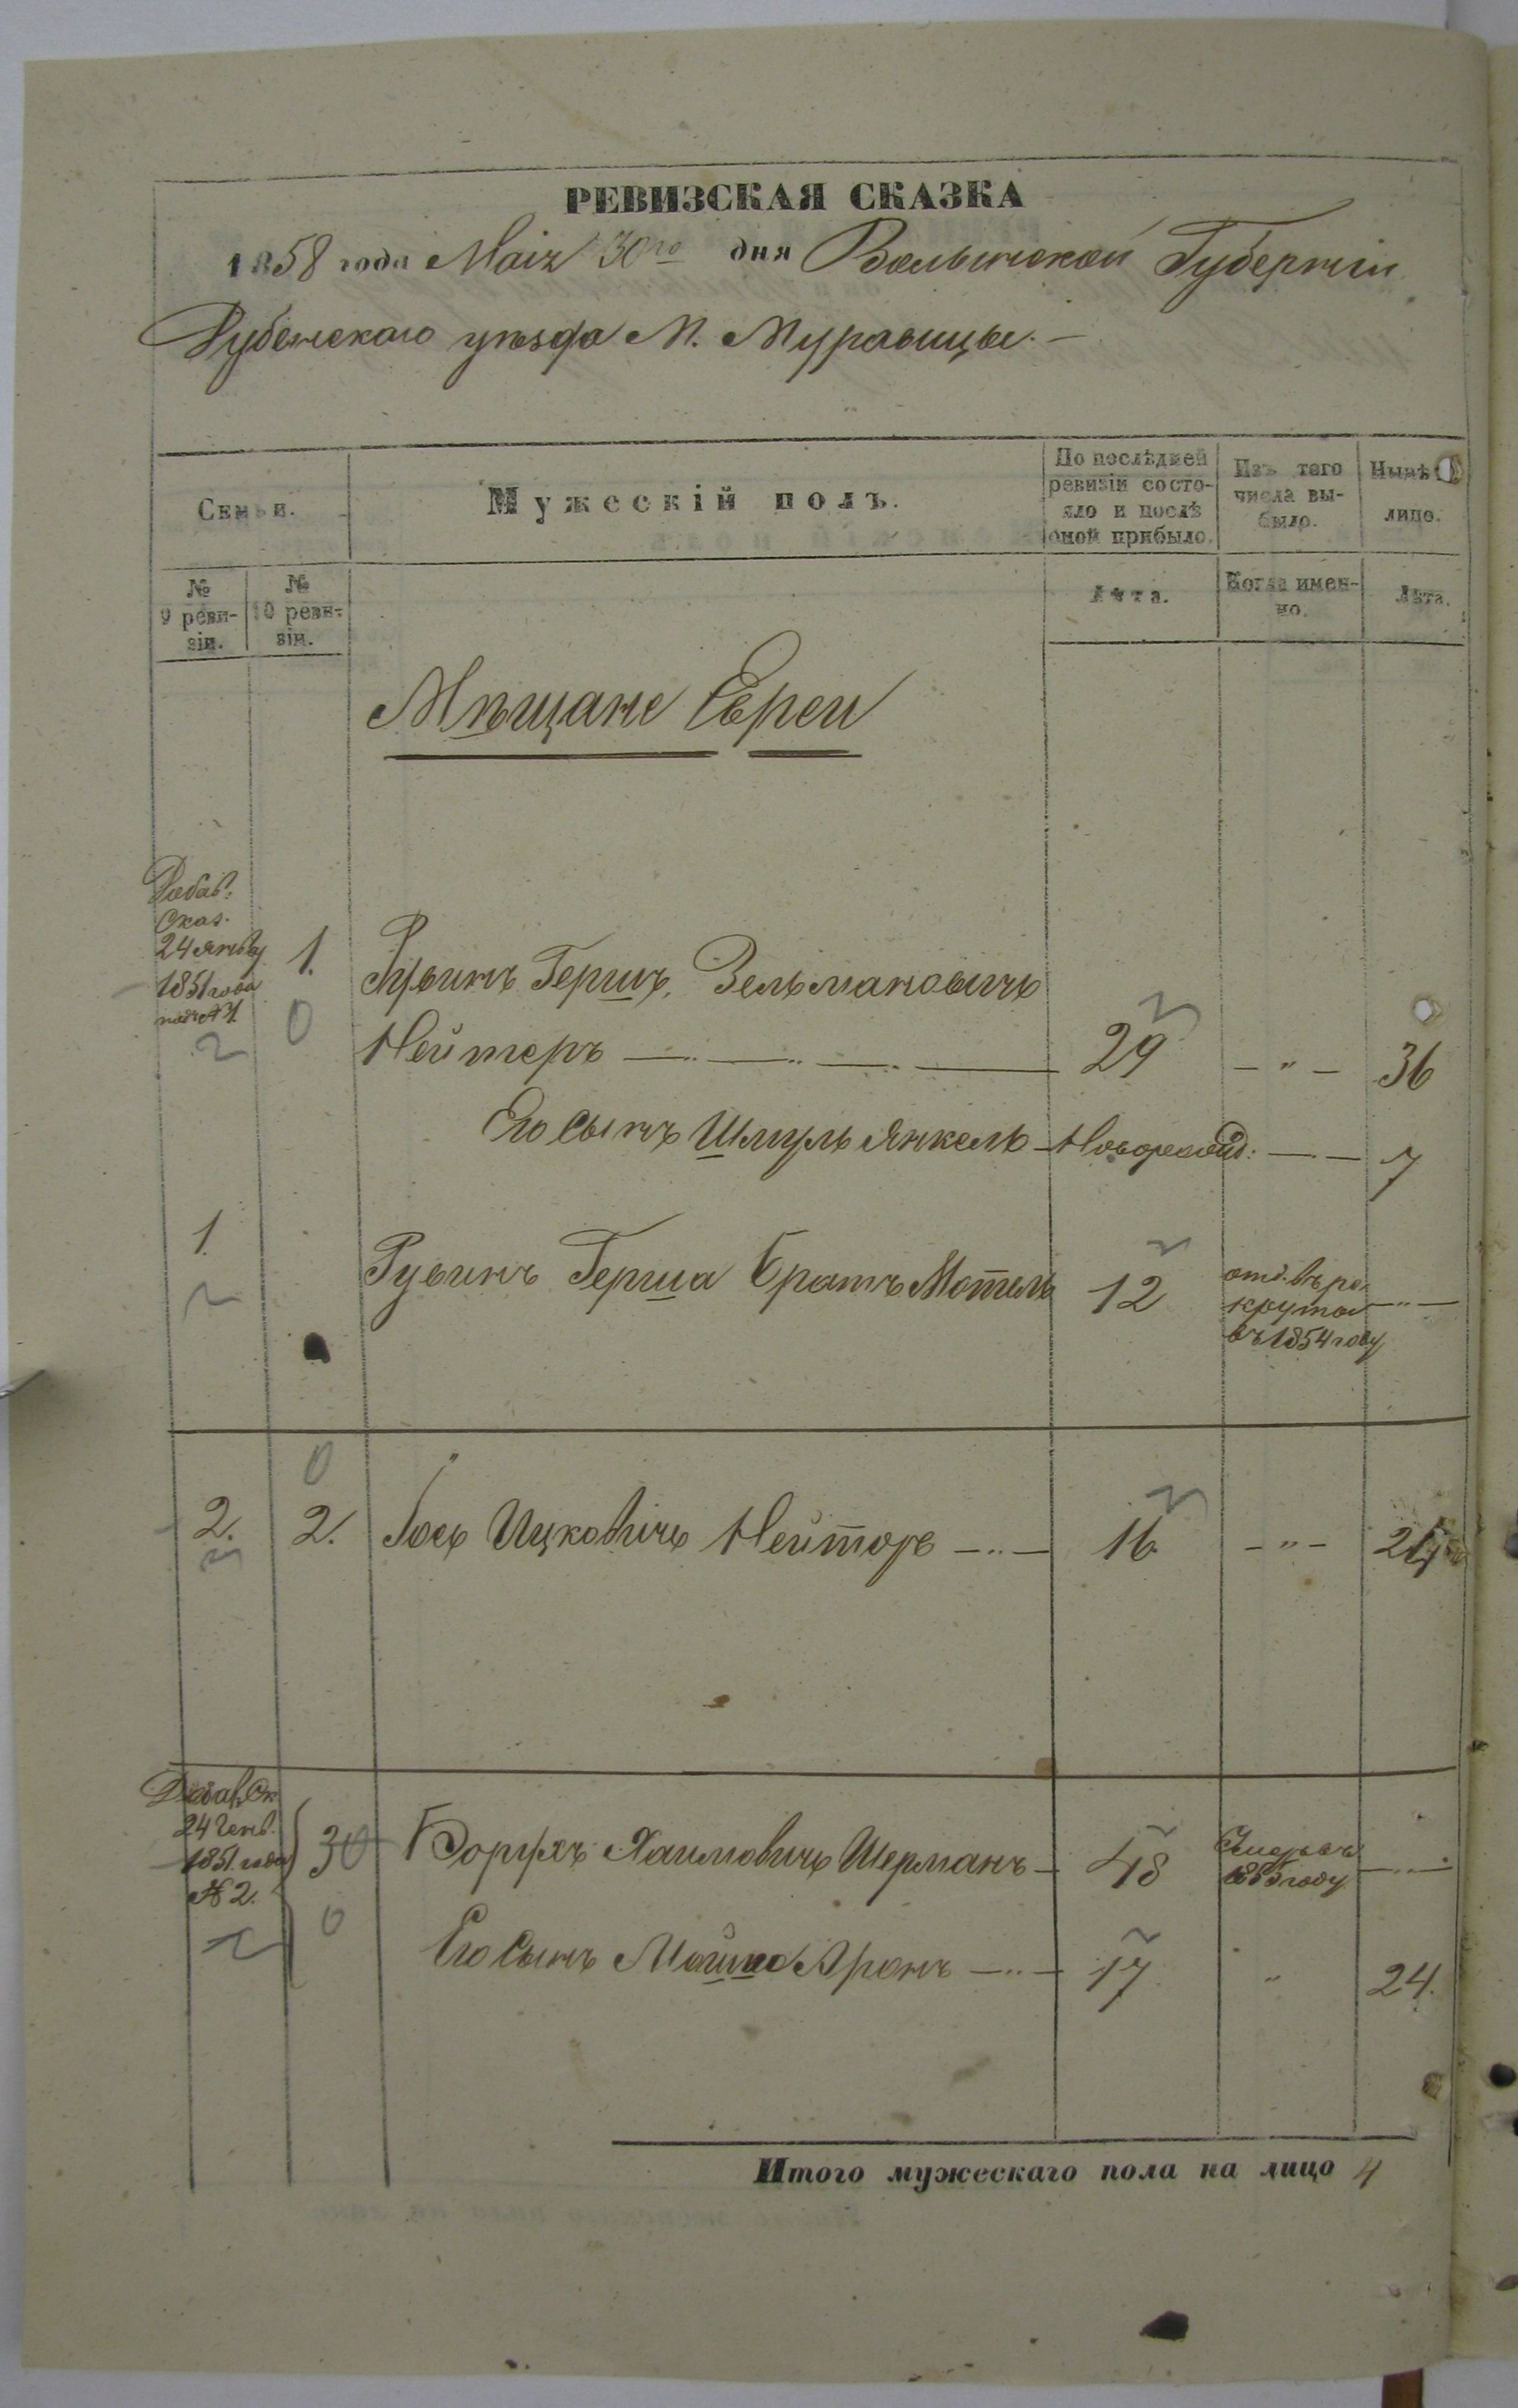 РЕВИЗСКАЯ СКАЗКА
1858 года Маія 30го дня Волынской Губерніи
Дубенскаго уѣзда М. Муравицы.
Семьи.
Мужескій полъ.
По послѣдней
ревизіи состо-
яло и послѣ
оной прибыло.
Изъ того
числа вы-
было.
Нынѣ
лицо.
№
9 реви-
зіи.
№
10 реви-
зіи.
Лѣта.
Когда имен-
но.
Лѣта.
Мѣщане Евреи
Добав.
Сказ.
24 Январ
1851 года
1. Рувинъ Гершъ Зельмановичъ
Нейтеръ 29 — " — 36
Его Сынъ Шмуль Янкель Новорожд: 7
1. Рувинъ Герша Братъ Мотель 12
отд. въ ре
круты
въ 1854 году
0
2. 2. Іось Ицковичъ Нейторъ 16 — " —
Добав. Ск
24 Генв.
1851 года
№ 2.
3 Борухъ Хаимовичъ Шерманъ 48
Умеръ въ
1855 году
0
Его Сынъ Мошко Аронъ 17 " 24.
Итого мужескаго пола на лицо 4